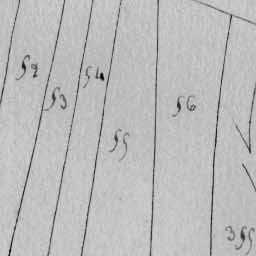 52
53
54
55
56
355